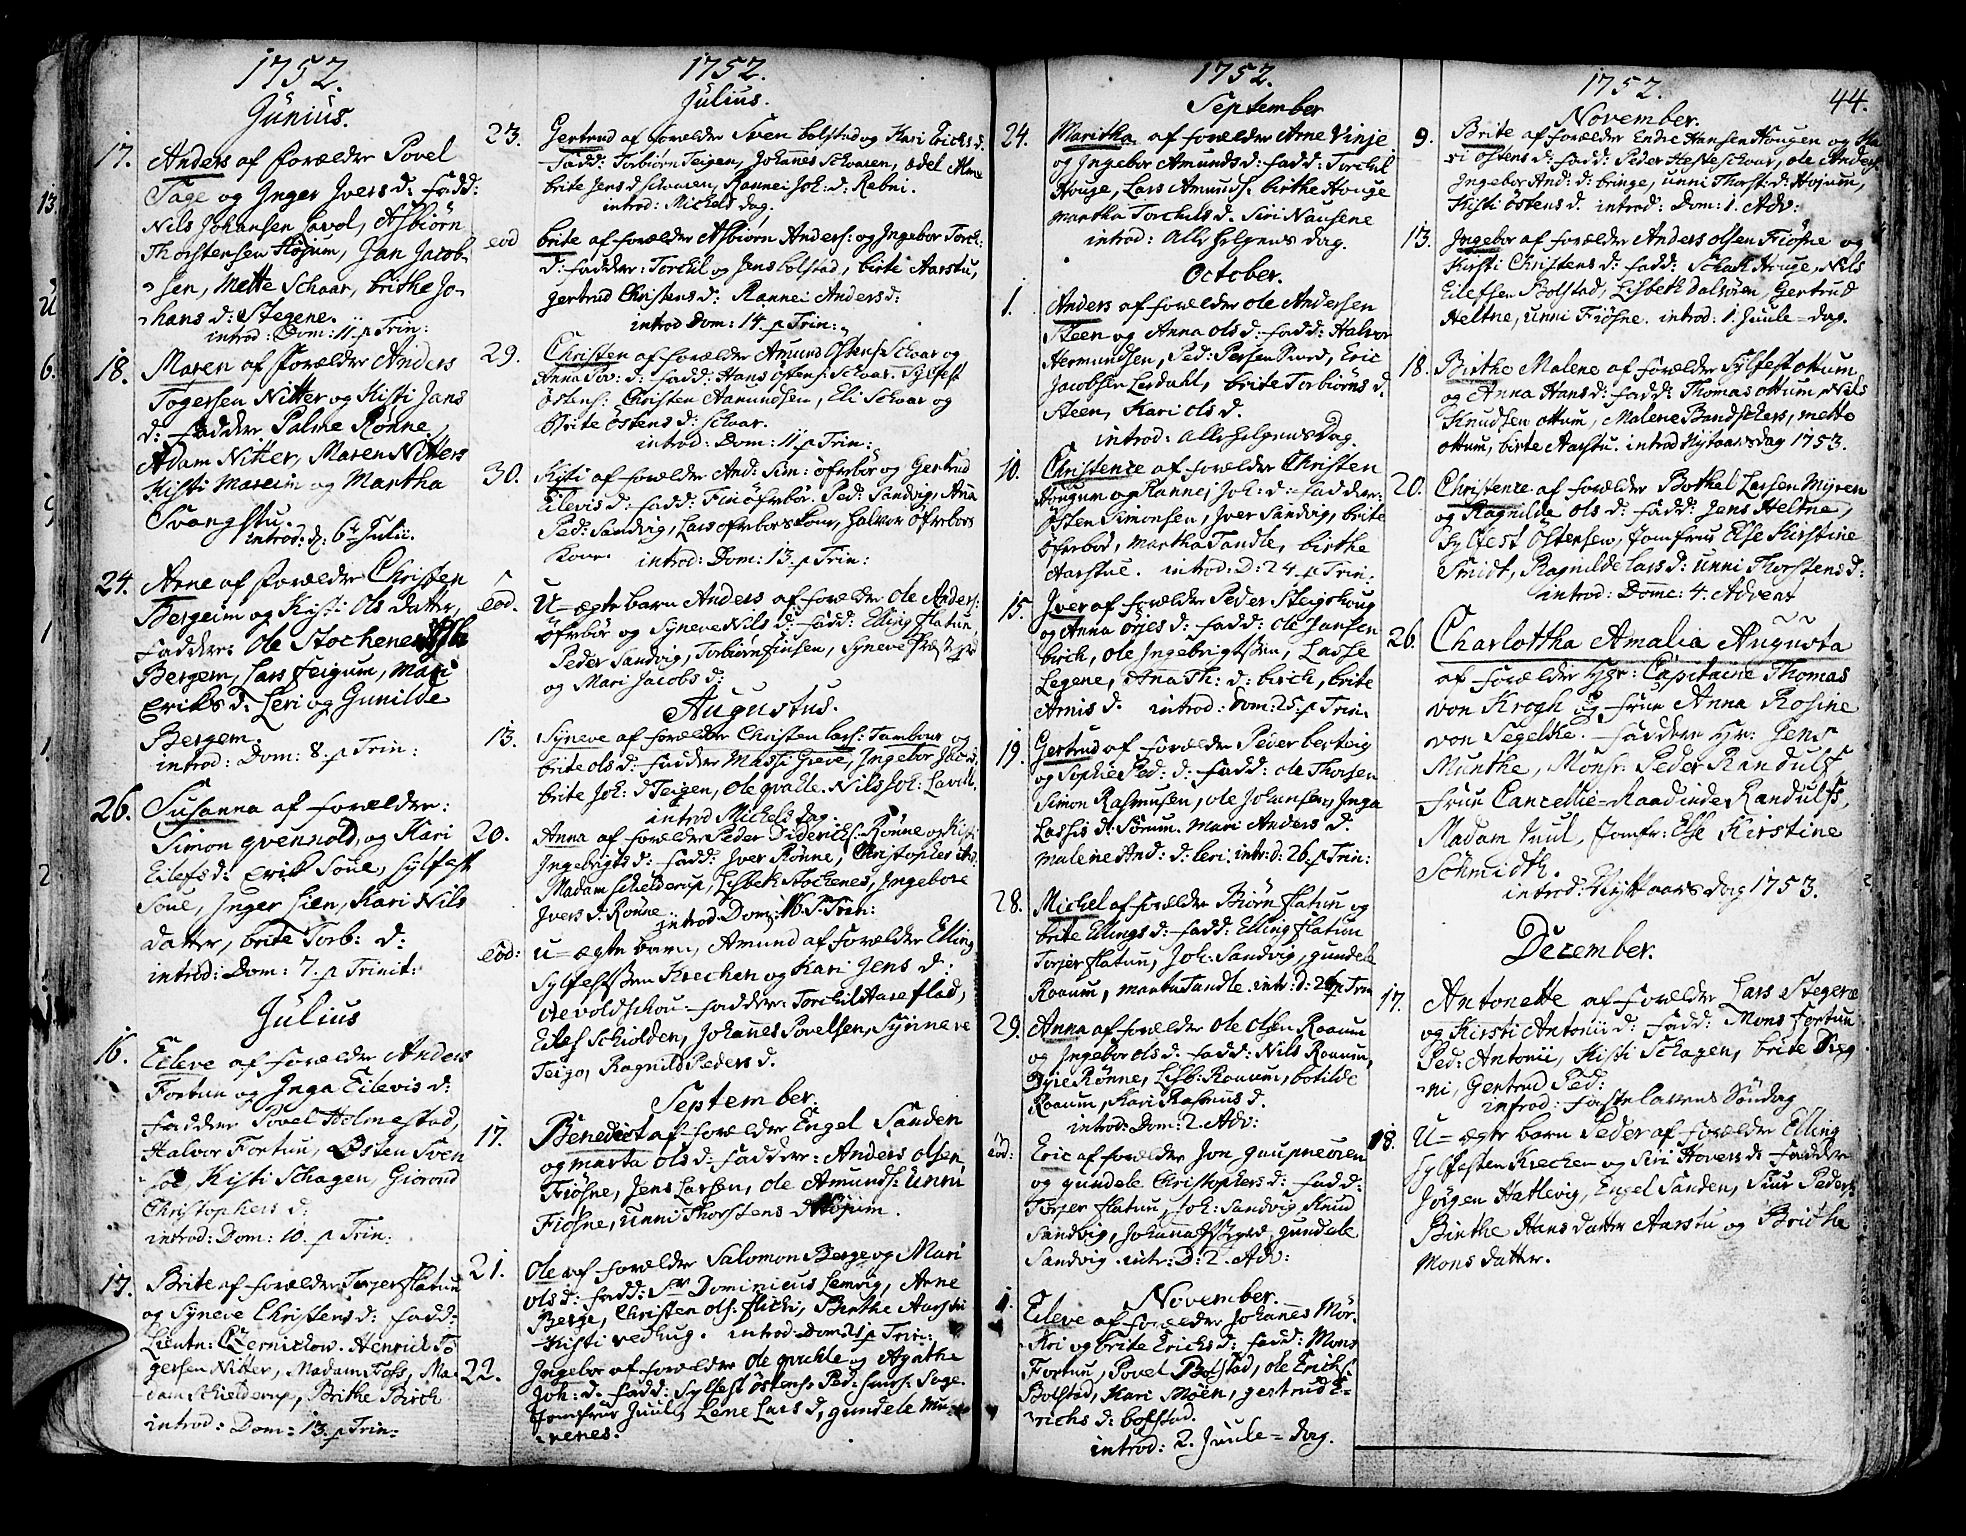 1752.
Junius.
17. Anders af Forældre Povel
Tage og Inger Jvers d: Fadd:
Nils Johansen Lavol, Asbiörn
Thorstensen Höjum, Jan Jacob-
sen, Mette Schaar, brithe Jo-
hans d: Stegene.
introd: Dom: 11. p Trin:
18. Maren af Forældre Anders
Tøgersen Nitter og Kisti Jans
d: Faddere Palme Rønne,
Adam Nitter, Maren Nitters
Kisti Mareim og Martha
Svangstu.
introd: d: 6 Julii.
24. Arne af Forældre Christen
Bergeim og Kisti Ols datter,
Faddere: Ole Stochenes
Bergem, Lars Feigum, Mari
Eriks d: Leri og Gunilde
Bergem.
introd: Dom: 8. p Trin:
26. Susanna af Forældre:
Simon qvenvold, og Kari
Eilefs d: Erik Soue, Sylfest
Soue, Inger Lien, Kari Nils
datter, brite Torb: d:
introd: Dom: 7. p Trinit:
Julius
16. Eileve af Forældre Anders
Fortun og Inga Eilevis d:
Faddere Povel Holmestad,
Halvor Fortun, Østen Sven
Kisti Schagen, Giorond
Christophers d:
introd: Dom: 10. p Trin:
17. Brite af Forældre Torjer flatun
og Syneve Christens d: Fadd:
Lieutn: Henrich To
gersen Nitter, Madam Foss, Ma-
dam Schielderup, Brithe Birch
introd: Dom: 13. p Trin:
1752.
Julius.
23. Gertrud af forældre Sven bolstad og Kari Erichs d.
Fadd: Torbiørn Teigen, Johanes Schaaren, Odel
brite Jens d schaaren, Rannei Joh: d: Rebni.
introd: Michels dag,
eod brite af forældre Asbiørn Anders: og Ingebor Torch:
d: Fadder: Torchil og Jens bolstad, birte Aarstu,
gertrud Christens d: Rannei Anders d:
introd Dom: 14. p Trin:
29. Christen af forældre Amund Ostens: Schaar og
Anna d: Fadd: Hans Ostens: Schaar. Sylfest
Östens: Christen Aamundsen, Eli Schaar og
Brite Östens d: Schaar.
introd: Dom: 11. p Trin:
30. Kisti af forældre And: Sim: öfrebör og Gertrud
Eilevis d: Fadd: Fin öfrebör. Ped: Sandvig, Ana
Ped: Sandvig, Lars öfrebörs Kone, Halvor öfrebörs
Kone. introd: Dom: 13. p Trin:
eod. U-ægte barn Anders af forældre Ole Anders:
öfrebör og Syneve Nils d: Fadd: Elling flatun,
Peder Sandvig, Torbiørn Finsen, Syneve
og Mari Jacobs d:
Augustus.
13. Syneve af forældre Christen Lars: Tambour og
brite Ols d: Fadder Massi Greve, Ingebor Jac: d:
brite Joh: d Teigen, Ole qvalle. Nils Joh: Lavol,
introd Michels dag.
20. Anna af forældre Peder Diderichs: Rønne og Kisti
Ingebrigts d: Fadd: Jver Rønne, Christopher And:
Madam Schielderup, Lisbeth Stochenes, Ingebore
Jvers d: Rønne introd: Dom: 16. p Trin:
eod: U-ægte barn, Amund af forældre Elling
Sylfestsen Krechen og Kari Jens d:
Faddere: Torchil Haseflad,
Eilef Schiolden, Johanes Povelsen, Synneve
Teige, Ragnild Peders d.
September.
17. Benedict af forældre Engel Sanden
og marta Ols d: Faddere: Anders Olsen,
Fiøsne, Jens Larsen, Ole Amunds: Unni
Fiøsne, Unni Thorstens d Höjum.
21. Ole af forældre Salomon Berge og Mari
Ols d: Fadd: Sr Dominicus Lemvig, Arne
Berge, Christen Ols: flichi, Birthe Aarstu
Kristi vedhug. introd Dom: 21 p Trin:
22. Ingebor af forældre Ole qvahle og Agathe
Joh: d. Fadd: Sylfest Östens: Ped: Siurs: Soge.
Jomfrue Juul, Lene Lars d, gundele Mu-
nenes.
1752.
September
24. Maritha af forældre Arne Vinje
og Ingebor Amunds d: Fadd: Torchil
Houge, Lars Amunds: birthe Houge
Martha Torchels d. Siri Nausene
introd: Alle helgens dag.
October.
1. Anders af forældre Ole Andersen
Steen og Anna Ols d: Fadd: Halvor
Hermundsen, Ped: Persen Eric
Jacobsen Lirdahl, brite Torbiørns d.
Steen, Kari Ols d.
introd: Allehelgens Dag.
10. Christence af forældre Christen
Hougum og Rannei Joh: d: Faddere:
Østen Simonsen, Jver Sandvig, brite
Öfrebör, Martha Tandle, birthe
Aarstue. introd: D: 24. p Trin:
15. Jver af forældre Peder Steigehoug
og Anna Ørjes d: Fadd: Ole Jansen
birch, Ole Ingebrigtsen, Lasse
Legene, Ana Th: d: birch, brite
Arnis d. introd: Dom: 25. p Trin.
19. Gertrud af forældre Peder bertvig
og Sophie Ped: d: Fadd: Ole Thorsen
Simon Rasmusen, Ole Johansen, Inga
Lassis d. Sørum. Mari Anders d.
Malene And: d: leri. intr: d: 26. p Trin:
28. Michel af forældre Biørn flatun og
brite Ellings d: Fadd: Elling flatun
Torjer flatun, Joh: Sandvig, gundele
Roaum, Marta Tandle. intr: d: 26 p Trin
29. Anna af forældre Ole Olsen Roaum
og Ingebor Ols d. Fadd: Nils Roaum,
Rønne, Lisb: Roaum, botilde
Roaum, Kari Rasmus d.
introd: Dom: 2. Adv:
eod: Eric af forældre Jon gaupneøren
og gundele Christophers d: Fadd:
Torjer flatun, Joh: Sandvig, Knud
Sandvig, Johanna gundele
Sandvig. intr: D: 2. Adv:
November.
1. Eileve af forældre Johanes Mör-
kri og brite Erichs d: Fadd: Mons
Fortun, Povel Bolstad, Ole Erichs:
Bolstad, Kari Moen, gertrud E-
richs d: bolstad.
introd: 2. Juule-dag.
1752. 44.
November.
9. Brite af forældre Endre Hansen Hougen og Ka-
ri Östens d: Fadd: Peder Hesteschaar, Ole Anders:
Ingebor And: d: bringe, unni Thorst: d: Hojum,
Kisti Östens d. introd: Dom: 1. Adv:
13. Ingebor af forældre Anders Olsen Fiøsne og
Kirsti Christens d: Fadd: Schach Houge, Nils
Eilefsen Bolstad, Lisbeth dalsøren, Gertrud
Heltne, unni Fiøsne. introd: 1. Juule-dag.
18. Birthe Malene af forældre Sylfest Ottum
og Anna Hans d: Fadd: Thomas Ottum, Nils
Knudsen Ottum, Malene mette
Ottum, birte Aarstu. introd Nytaarsdag 1753.
20. Christence af forældre Bothel Larsen Myren
og Ragnilde Ols d: Fadd: Jens Heltne,
Sylfest Östensen, Jomfrue Else Kirstine
Smidt, Ragnilde Lars d: Unni Thorstens d:
introd: Domc: 4. Advent
26. Charlottha Amalia Augusta
af forældre Hr: Capitaine Thomas
von Krogh og frue Anna Rosine
von Segelke. Faddere Hr: Jens
Munthe, Monsr. Peder Randulf,
Frue Cancellie-Raadinde Randulfs,
Madam Juul, Jomfr: Else Kirstine
Schmidth.
introd: Nyttaarsdag 1753.
December.
17. Antonette af forældre Lars Stegene
og Kirsti Antonii d: Fadd: Mons Fortun
Ped: Antonii, Kisti Schagen, brite
ni, Gertrud Ped:
introd: Fastelavens Söndag
18. U-ægte barn Peder af forældre Elling
Sylfesten Krechen og Siri Hovers d: Faddere
Jörgen Hatlevig, Engel Sanden, Siur Peders:
Birthe Hans datter Aarstu og Brithe
Mons datter.